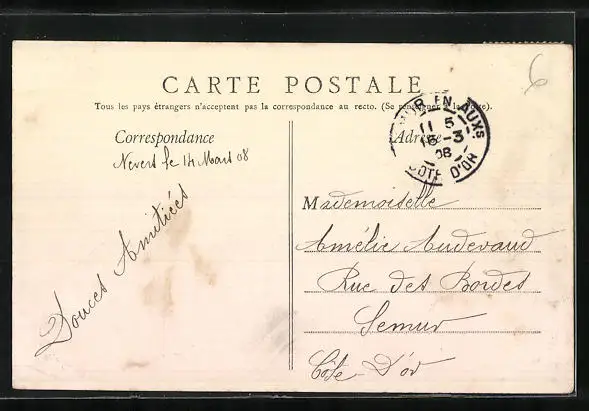 6
CARTE POSTALE
Tous les pays étrangers n'acceptent pas la correspondance au recto. (Se renseigner à la Poste).
Correspondance
Nevers le 14 Mars 08
Douces Amitiées
Adresse
MUR EN AUXS
11 5
16 - 3
08
COTE D'OR
Mademoiselle
Amélie Audevaud
Rue des Bordes
Semur
Côte D'or